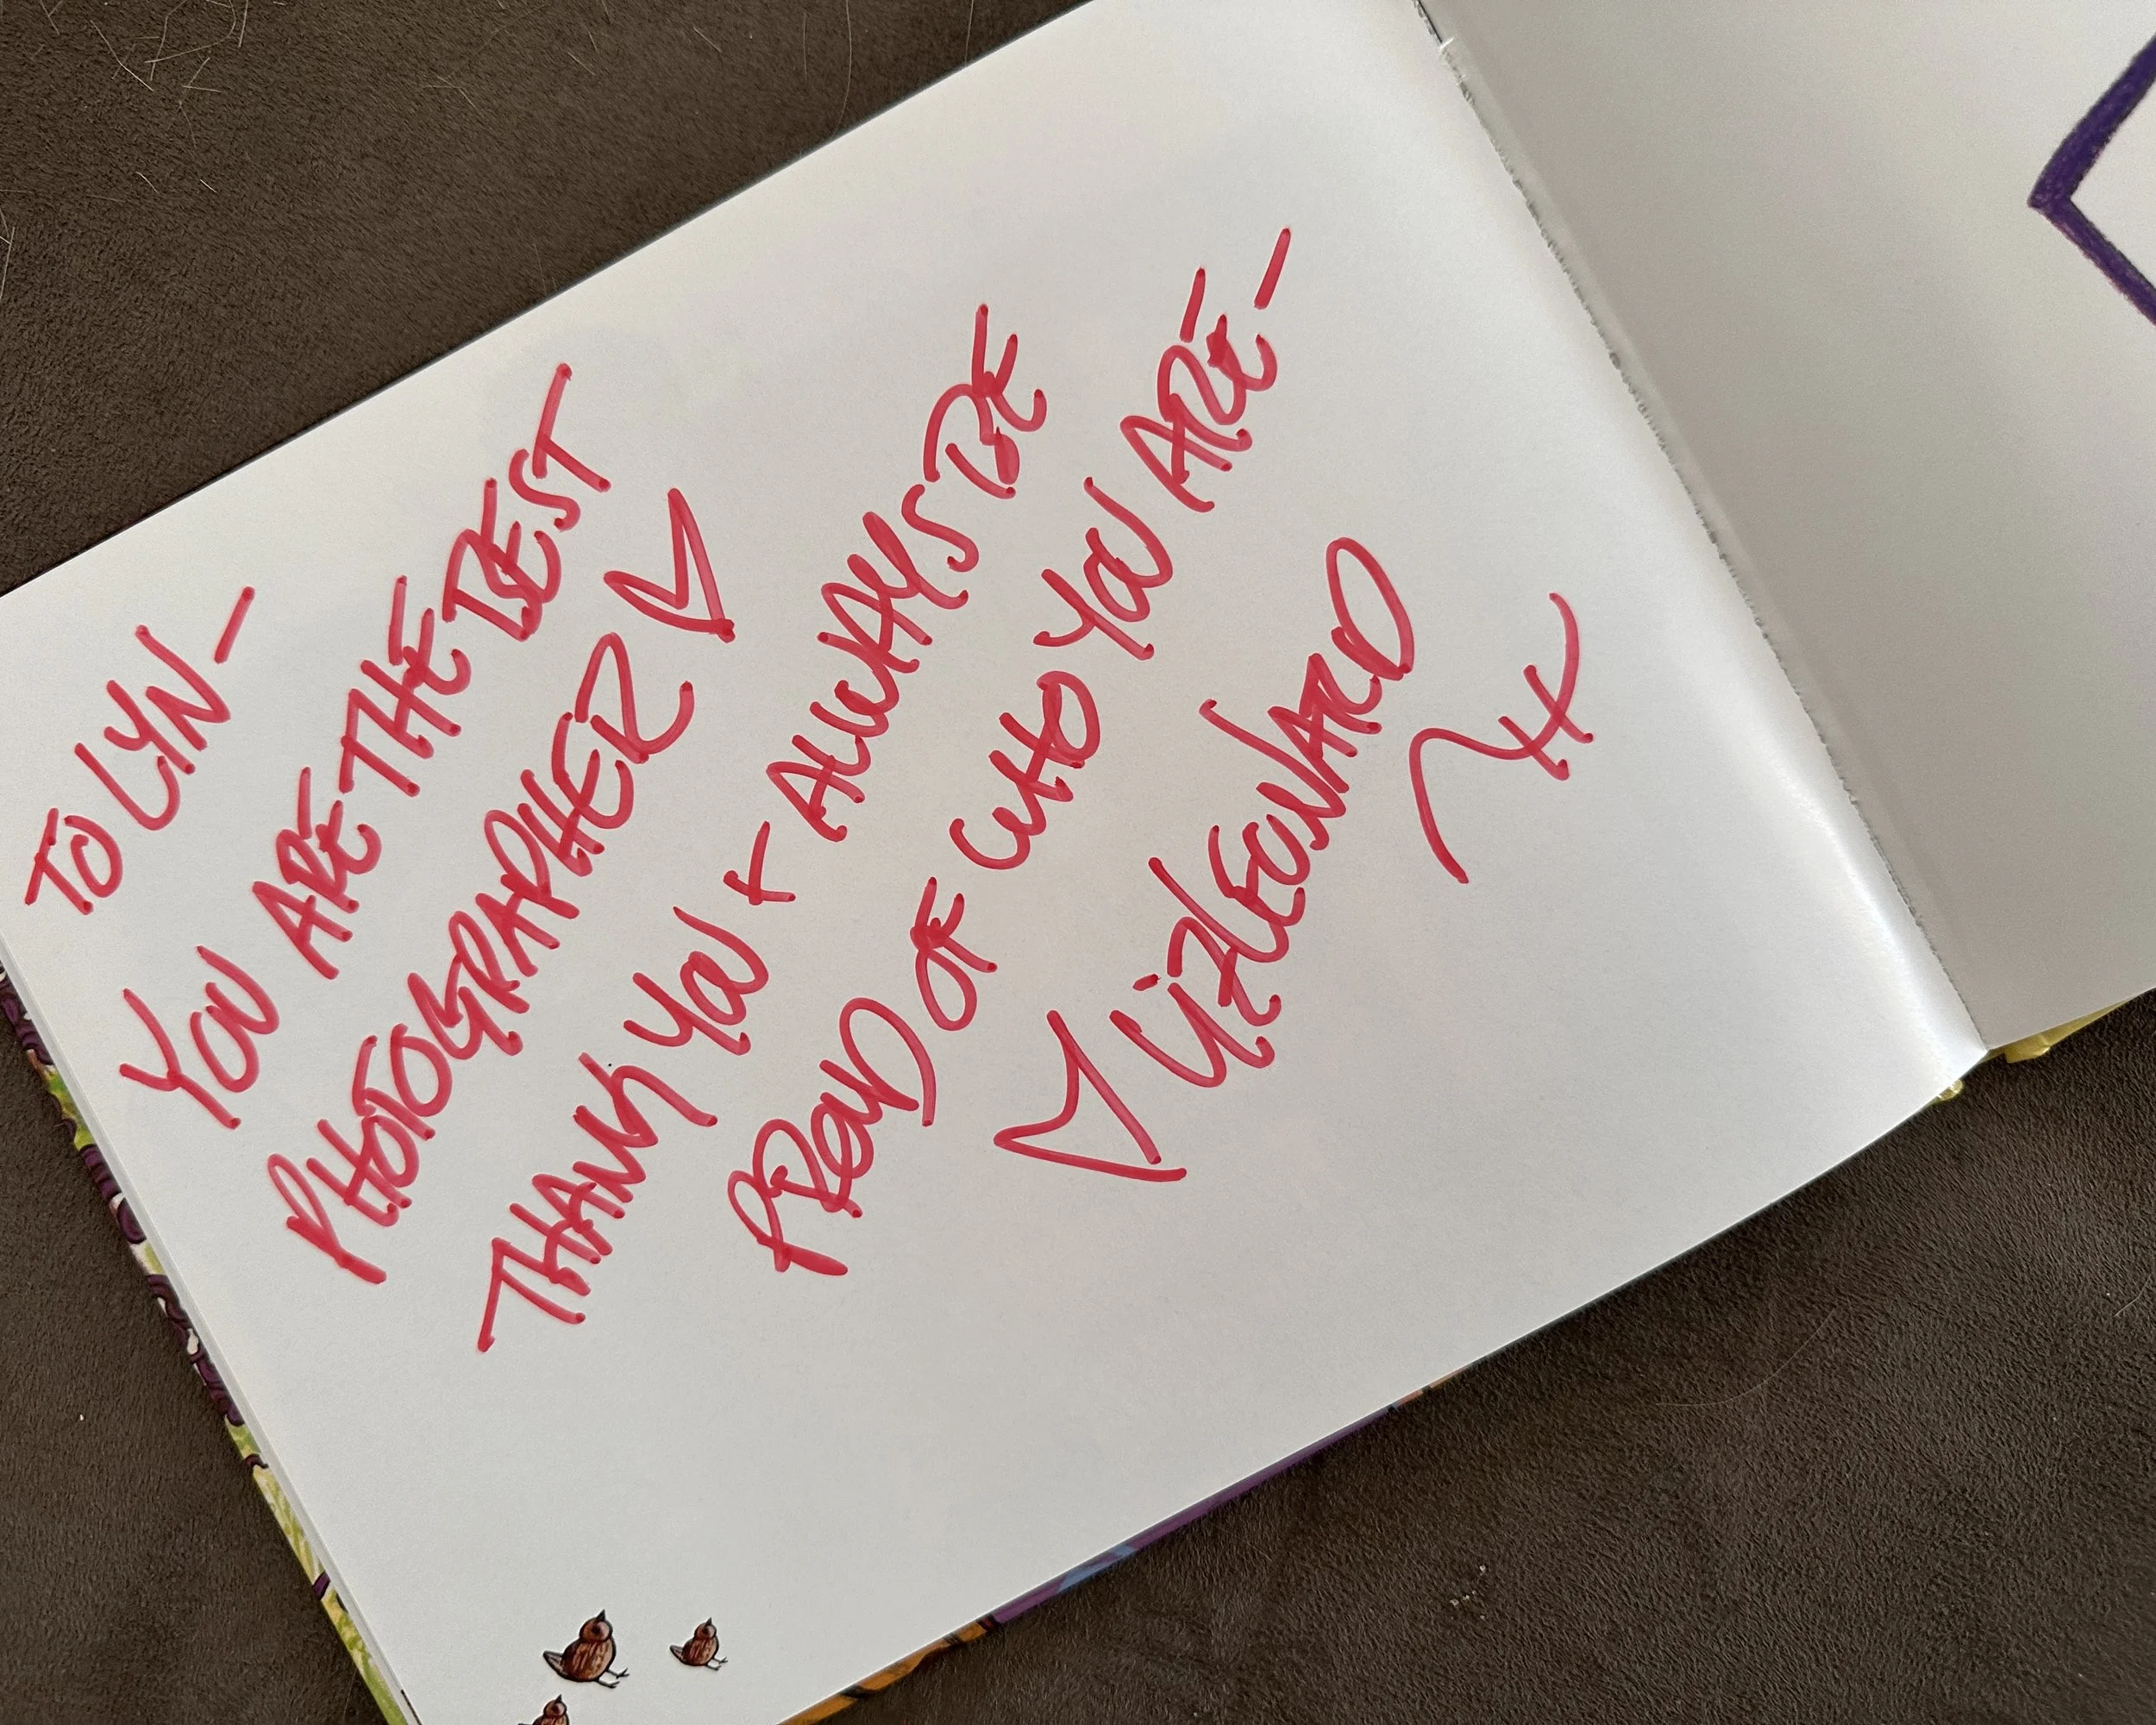 TO LYN-
YOU ARE THE BEST
PHOTOGRAPHER ♡
THANK YOU + ALWAYS BE
PROUD OF WHO YOU ARE-
♡ LIZ LEONARD